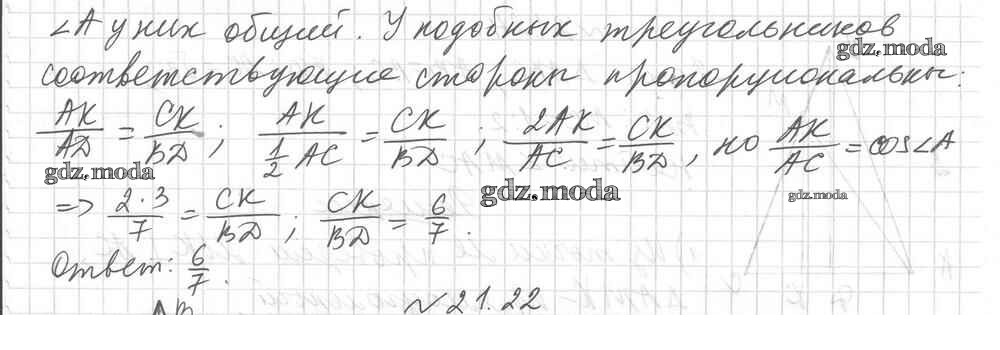 ∠A у них общий. У подобных треугольников
gdz.moda
соответствующие стороны пропорциональны:
AK/AD = CK/BD ; AK/(1/2 AC) = CK/BD ; 2AK/AC = CK/BD , но AK/AC = cos∠A
gdz.moda
gdz.moda
gdz.moda
=> 2·3/7 = CK/BD ; CK/BD = 6/7 .
Ответ: 6/7 .
№21.22